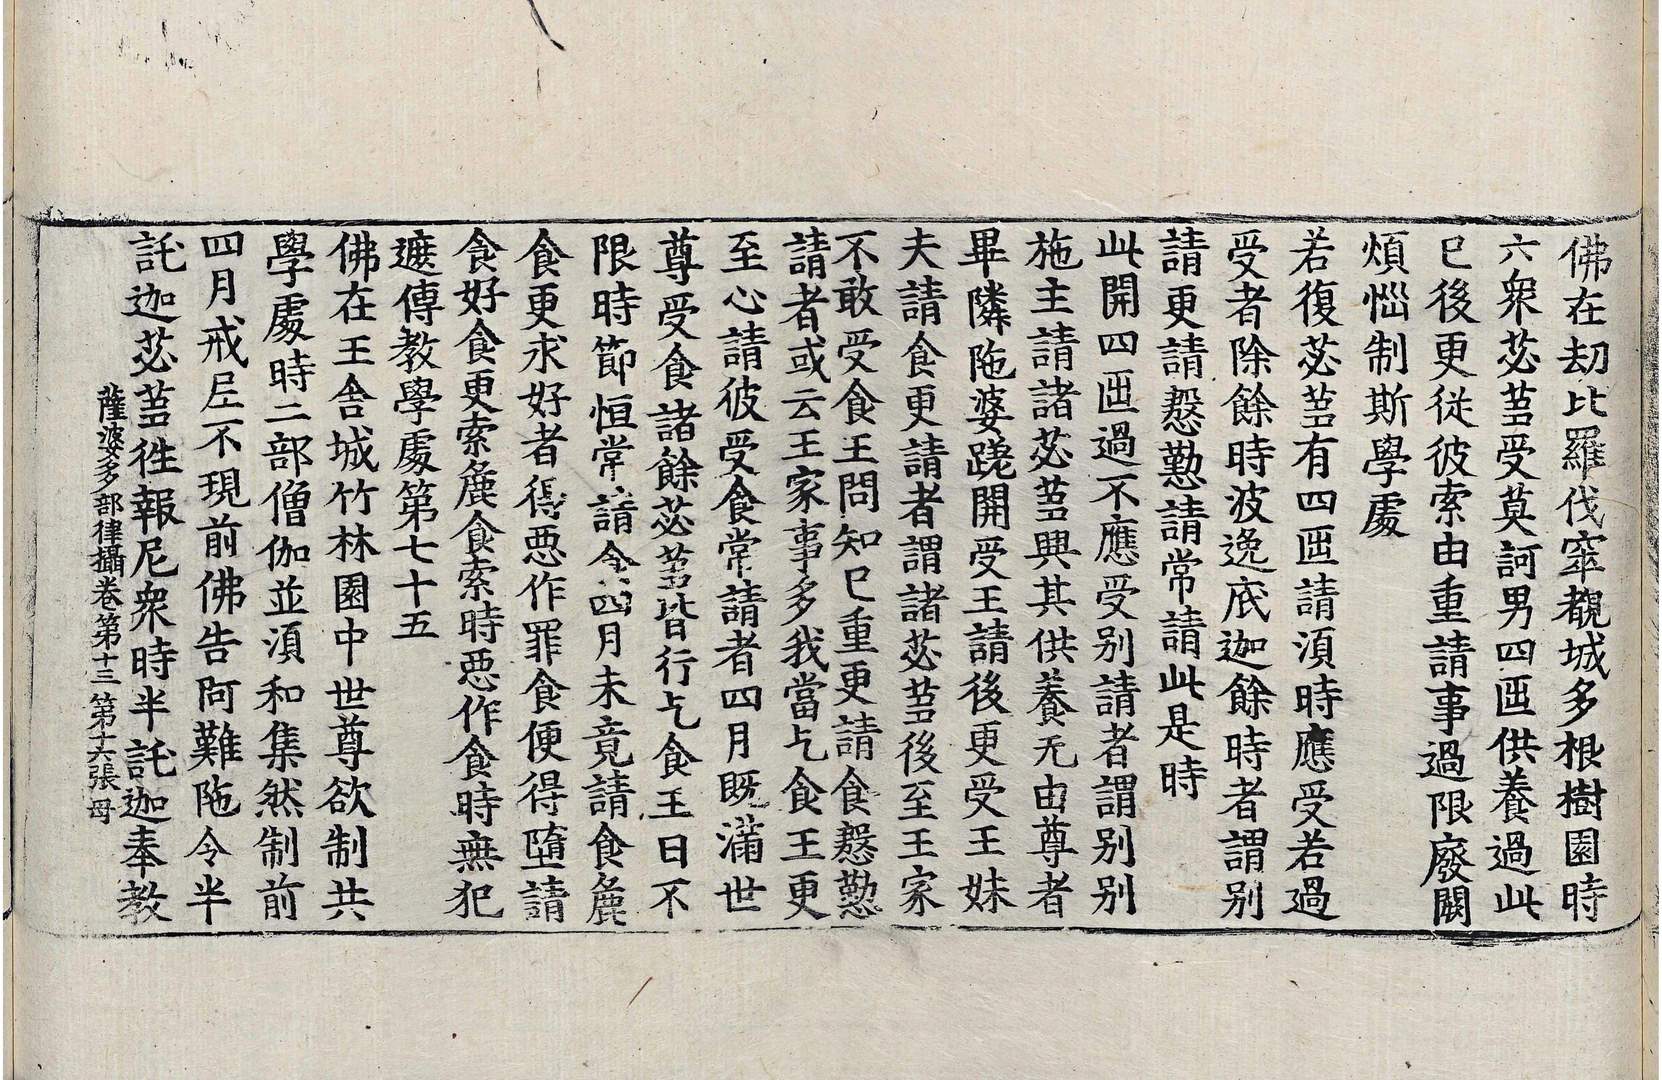 佛在劫比羅伐窣覩城多根樹園時
六衆苾芻受莫訶男四西供養過此
已後更從彼索由重請事過限廢闕
煩惱制斯學處
若復苾芻有四西請須時應受若過
受者除餘時波逸底迦餘時者謂別
請更請慇懃請常請此是時
此開四西過不應受別請者謂別別
施主請諸苾芻與其供養无由尊者
畢隣陁婆蹉開受王請後更受王妹
夫請食更請者謂諸苾芻後至王家
不敢受食王問知已重更請食慇懃
請者或云王家事多我當乞食王更
至心請彼受食常請者四月既滿世
尊受食諸餘苾芻皆行乞食王曰不
限時節恒常請食四月未竟請食麁
食更求好者得惡作罪食便得墮請
食好食更索麁食索時惡作食時無犯
遮傳教學處第七十五
佛在王舍城竹林園中世尊欲制共
學處時二部僧伽並須和集然制前
四月戒尼不現前佛告阿難陁令半
託迦苾芻徃報尼衆時半託迦奉教
薩婆多部律攝卷第十三 第十六張 母